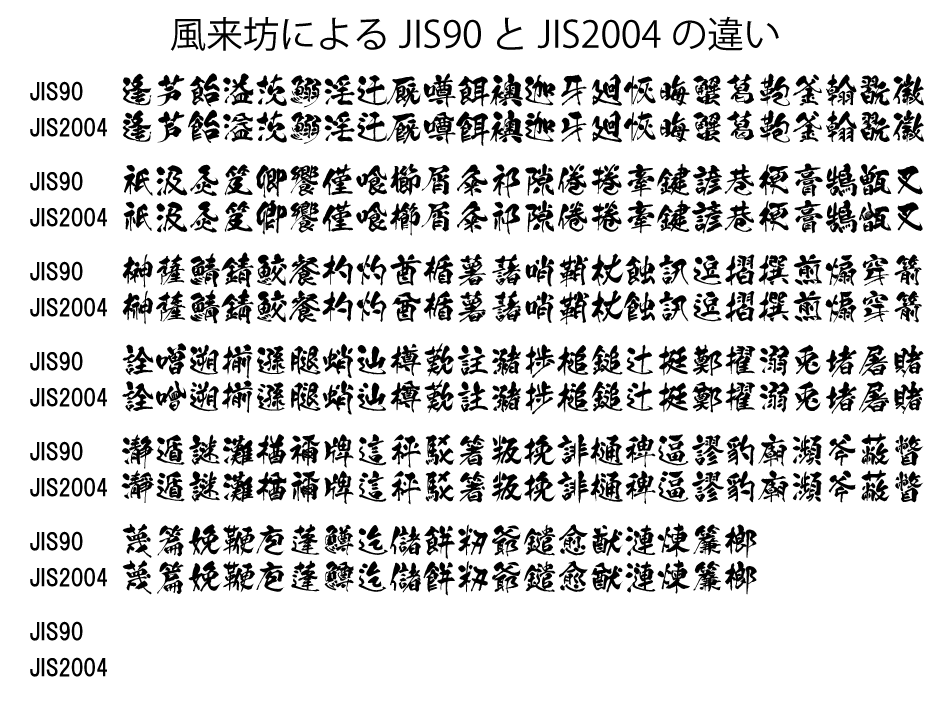 風来坊による JIS90 と JIS2004 の違い
JIS90 逢芦飴溢茨鰯淫迂厩噂餌襖迦牙廻恢晦蟹葛鞄釜翰翫徽
JIS2004 逢芦飴溢茨鰯淫迂厩噂餌襖迦牙廻恢晦蟹葛鞄釜翰翫徽
JIS90 祇汲灸笈卿饗僅喰櫛屑粂祁隙倦捲牽鍵諺巷梗膏鵠甑叉
JIS2004 祇汲灸笈卿饗僅喰櫛屑粂祁隙倦捲牽鍵諺巷梗膏鵠甑叉
JIS90 榊薩鯖錆鮫餐杓灼酋楯薯藷哨鞘杖蝕訊逗摺撰煎煽穿箭
JIS2004 榊薩鯖錆鮫餐杓灼酋楯薯藷哨鞘杖蝕訊逗摺撰煎煽穿箭
JIS90 詮噌遡揃遜腿蛸辿樽歎註瀦捗槌鎚辻挺鄭擢溺兎堵屠賭
JIS2004 詮噌遡揃遜腿蛸辿樽歎註瀦捗槌鎚辻挺鄭擢溺兎堵屠賭
JIS90 瀞遁謎灘楢禰牌這秤駁箸叛挽誹樋稗逼謬豹廟瀕斧蔽瞥
JIS2004 瀞遁謎灘楢禰牌這秤駁箸叛挽誹樋稗逼謬豹廟瀕斧蔽瞥
JIS90 蔑篇娩鞭庖蓬鱒迄儲餅籾爺鑓愈猷漣煉簾榔
JIS2004 蔑篇娩鞭庖蓬鱒迄儲餅籾爺鑓愈猷漣煉簾榔
JIS90
JIS2004